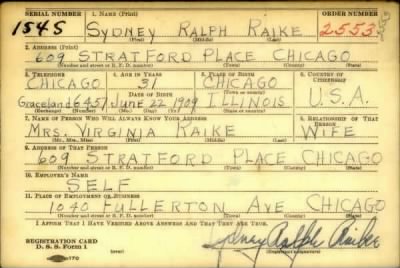 SERIAL NUMBER 1. NAME (Print) ORDER NUMBER
1545 SYDNEY RALPH RAIKE 2553
(First) (Middle) (Last)
2. ADDRESS (Print)
609 STRATFORD PLACE CHICAGO
(Number and street or R. F. D. number) (Town) (County) (State)
3. TELEPHONE 4. AGE IN YEARS 5. PLACE OF BIRTH 6. COUNTRY OF CITIZENSHIP
CHICAGO 31 CHICAGO
DATE OF BIRTH (Town or county)
Graceland 6457 June 22 1909 ILLINOIS U.S.A.
(Exchange) (Number) (Mo.) (Day) (Yr.) (State or country)
7. NAME OF PERSON WHO WILL ALWAYS KNOW YOUR ADDRESS 8. RELATIONSHIP OF THAT PERSON
MRS. VIRGINIA RAIKE WIFE
(Mr., Mrs., Miss) (First) (Middle) (Last)
9. ADDRESS OF THAT PERSON
609 STRATFORD PLACE CHICAGO
(Number and street or R. F. D. number) (Town) (County) (State)
10. EMPLOYER'S NAME
SELF
11. PLACE OF EMPLOYMENT OR BUSINESS
1040 FULLERTON AVE CHICAGO
(Number and street or R. F. D. number) (Town) (County) (State)
I AFFIRM THAT I HAVE VERIFIED ABOVE ANSWERS AND THAT THEY ARE TRUE.
REGISTRATION CARD
D. S. S. Form 1 (over) Sydney Ralph Raike
(Registrant's signature)